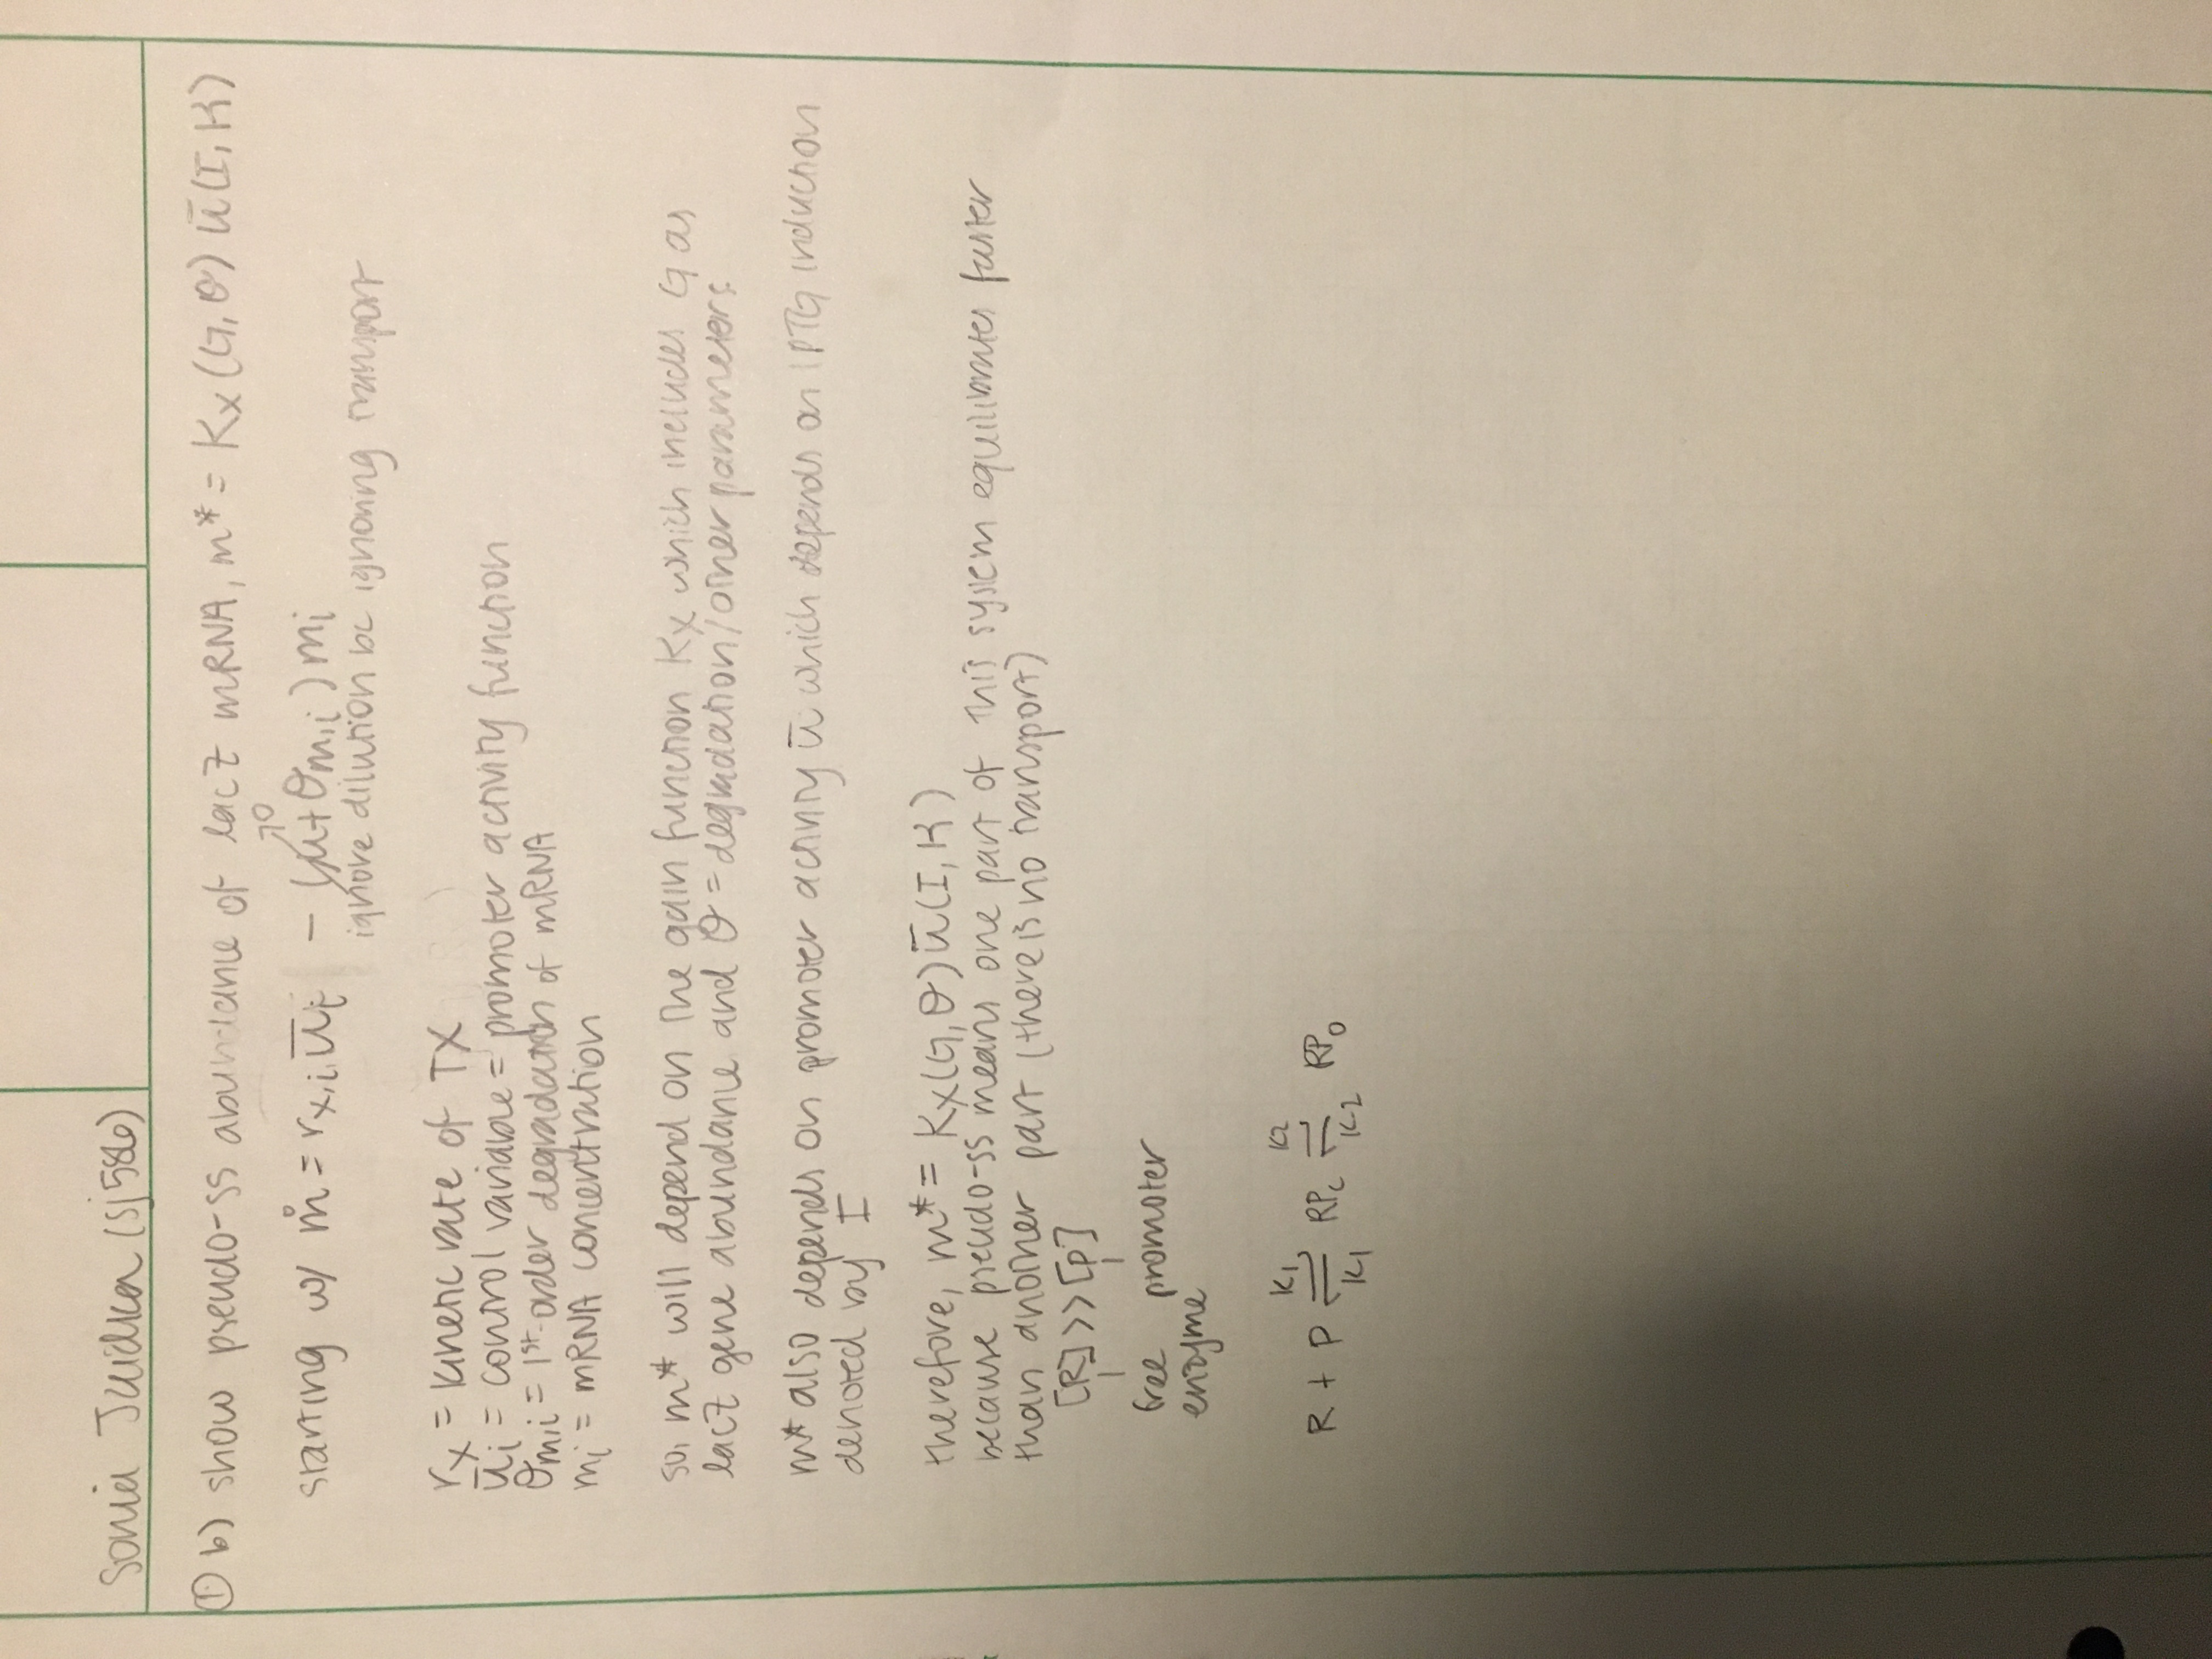 Sonia Juidka (sj586)
① b) show pseudo-ss abundance of lacZ mRNA, m* = Kx (G, θ) ū(I, K)
→0
starting w/ ṁ = rx,i ūi - (μ + θm,i) mi
ignore dilution bc ignoring transport
rx = kinetic rate of TX
ūi = control variable = promoter activity function
θm,i = 1st-order degradation of mRNA
mi = mRNA concentration
so, m* will depend on the gain function Kx which includes G as
lacZ gene abundance and θ = degradation/other parameters
m* also depends on promoter activity ū which depends on IPTG induction
denoted by I
therefore, m* = Kx(G, θ) ū(I, K)
because pseudo-ss means one part of this system equilibrates faster
than another part (there is no transport)
[R] >> [P]
free promoter
enzyme
K1 K2
R + P ⇌ RPc ⇌ RPo
K1 K-2